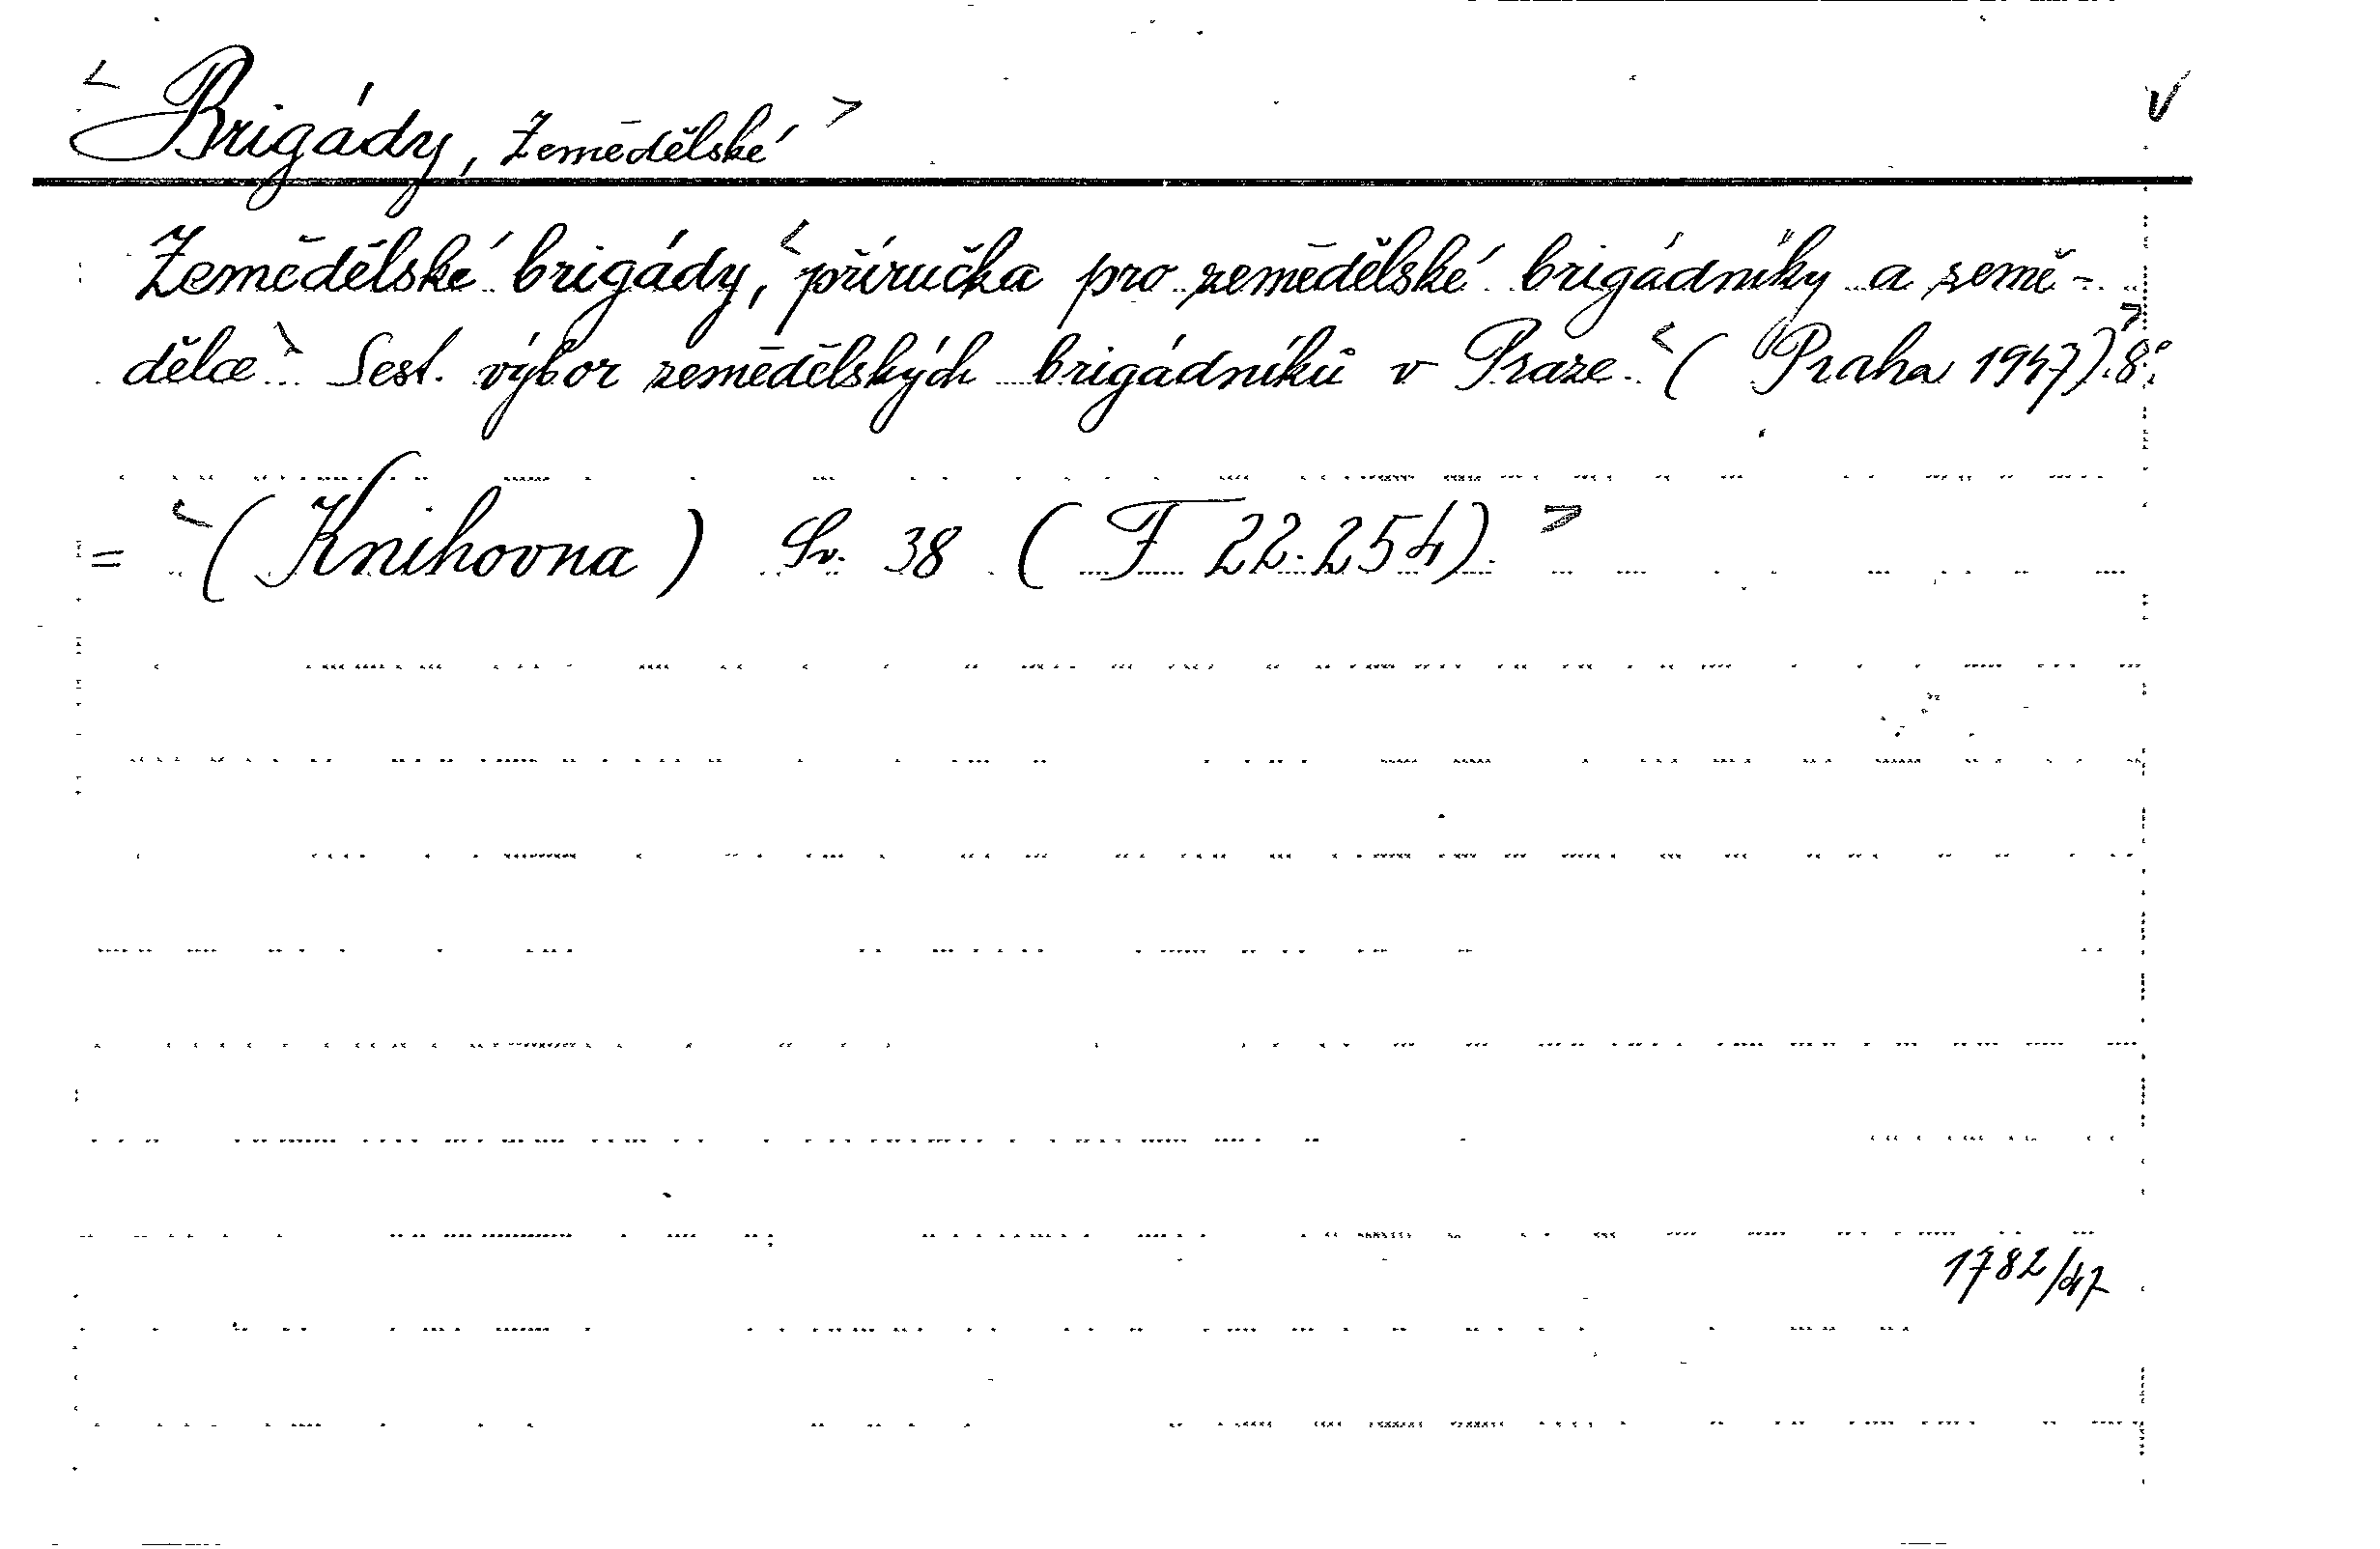 < Brigády, Zemědělské > V
Zemědělské brigády, < příručka pro zemědělské brigádníky a země-
dělce > Sest. výbor zemědělských brigádníků v Praze. < ( Praha 1947). 8°. >
= < ( Knihovna ) Sv. 38 ( F 22.254). >
1782/47